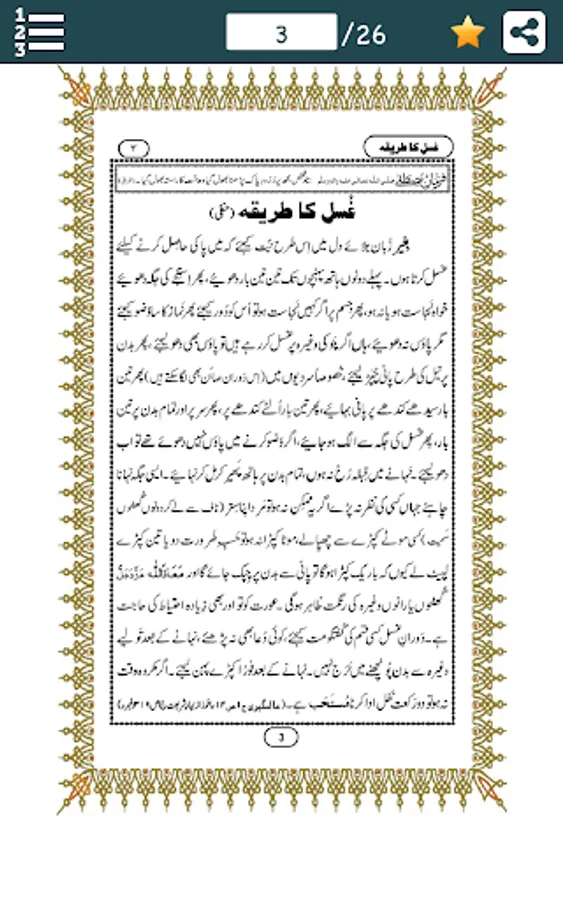 1
2
3
3 /26
۳ غسل کا طریقہ
فرمانِ مصطفٰے
غُسل کا طریقہ (حنفی)
بغیر زَبان ہلائے دل میں اس طرح نیّت کیجئے کہ میں پاکی حاصل کرنے کیلئے
غسل کرتا ہوں۔ پہلے دونوں ہاتھ پہنچوں تک تین تین بار دھوئیے، پھر اِستنجے کی جگہ دھوئیے
خواہ نَجاست ہو یا نہ ہو، پھر جسم پر اگر کہیں نَجاست ہو تو اُس کو دُور کیجئے پھر نَماز کا سا وُضو کیجئے
مگر پاؤں نہ دھوئیے، ہاں اگر چوکی وغیرہ پر غسل کر رہے ہیں تو پاؤں بھی دھو لیجئے، پھر بدن
پر تیل کی طرح پانی چُپَڑ لیجئے، خُصُوصاً سردیوں میں (اِس دَوران صابُن بھی لگا سکتے ہیں) پھر تین
بار سیدھے کندھے پر پانی بہائیے، پھر تین بار اُلٹے کندھے پر، پھر سر پر اور تمام بدن پر تین
بار، پھر غسل کی جگہ سے الگ ہو جائیے، اگر وُضو کرنے میں پاؤں نہیں دھوئے تھے تو اب
دھو لیجئے۔ نہانے میں قبلہ رُخ نہ ہوں، تمام بدن پر ہاتھ پھیر کر مَل کر نہائیے۔ ایسی جگہ نہانا
چاہئے جہاں کسی کی نظر نہ پڑے اگر یہ ممکن نہ ہو تو مَرد اپنا سِتر (ناف سے لے کر دونوں گھٹنوں
سَمیت) کسی موٹے کپڑے سے چھپالے، موٹا کپڑا نہ ہو تو حسبِ ضَرورت دو یا تین کپڑے
لپیٹ لے کیوں کہ باریک کپڑا ہوگا تو پانی سے بدن پر چپک جائے گا اور مَعَاذَ اللہ عَزَّوَجَلَّ
گھٹنوں یا رانوں وغیرہ کی رنگت ظاہر ہوگی۔ عورت کو تو اور بھی زیادہ احتیاط کی حاجت
ہے۔ دَورانِ غسل کسی قسم کی گفتگو مت کیجئے، کوئی دُعا بھی نہ پڑھئے، نہانے کے بعد تولیے
وغیرہ سے بدن پُونچھنے میں حَرَج نہیں۔ نہانے کے بعد فوراً کپڑے پہن لیجئے۔ اگر مکروہ وقت
نہ ہو تو دو رَکعت نَفل ادا کرنا مُستَحَب ہے۔ (عالمگیری ج ۱ ص ۱۴
3